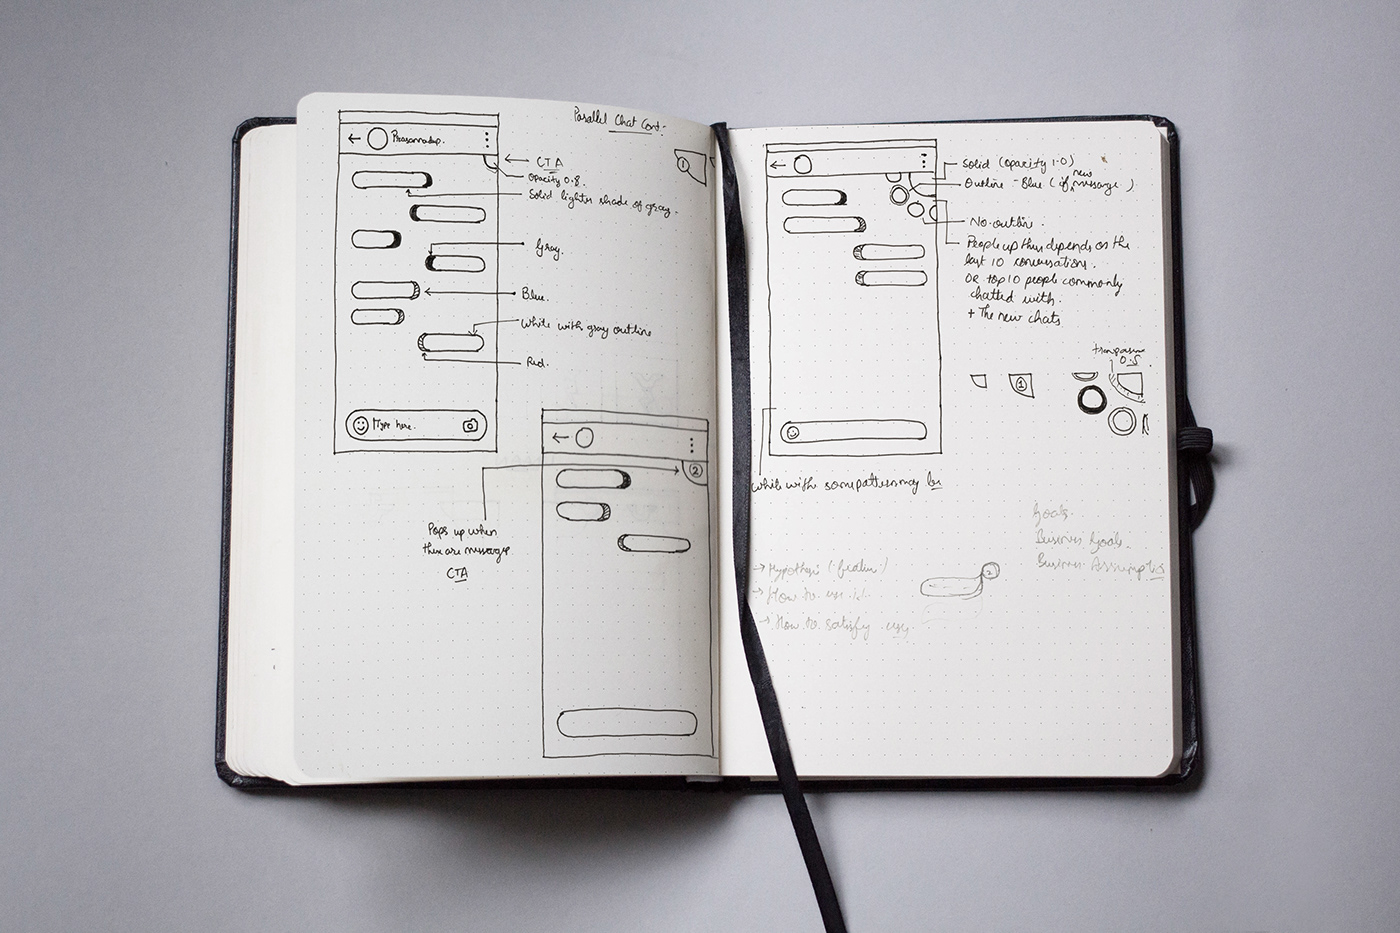 Parallel Chat Cont-
CTA
Opacity 0.8.
Solid lighter shade of gray-
Gray.
Blue.
White with gray outline
Red.
Type here.
1
2
Pops up when
there are messages
CTA
Solid (opacity 1.0)
Outline - Blue (if new message).
No outline.
People up there depends on the
last 10 conversations.
OR top 10 people commonly
chatted with.
+ The new chats
0.5.
1
White with some pattern may be
Goals
Business Goals.
Business
→ Hypothesis
→ How to use it.
→ How to satisfy
2